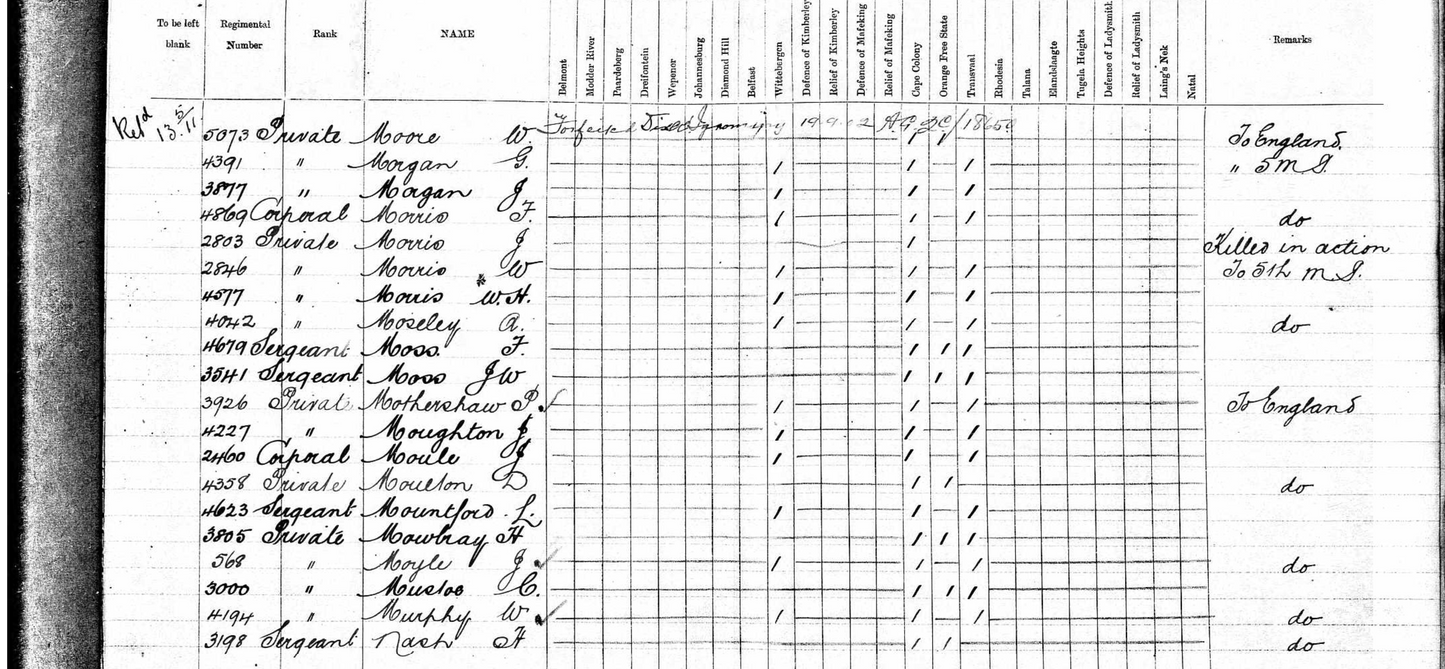 To be left blank Regimental Number Rank NAME Belmont Modder River Paardeberg Dreifontein Wepener Johannesburg Diamond Hill Belfast Wittebergen Defence of Kimberley Relief of Kimberley Defence of Mafeking Relief of Mafeking Cape Colony Orange Free State Transvaal Rhodesia Talana Elandslaagte Tugela Heights Defence of Ladysmith Relief of Ladysmith Laing's Nek Natal Remarks
Retd 13.5/11 5073 Private Moore W. Forfeited 19.9.02 / / To England.
4391 " Morgan G. / / / " 5 M I.
3877 " Morgan J / / /
4869 Corporal Morris F. / / / do
2803 Private Morris J / Killed in action
2846 " Morris W / / / To 5th M I.
4577 " Morris * W.H. / / /
4042 " Moseley A. / / / do
4679 Sergeant Moss. F. / / /
3541 Sergeant Moss J W / / /
3926 Private Mothershaw P ✓ / / / To England
4227 " Moughton J / / /
2460 Corporal Moule J / / /
4358 Private Moulton D / / do
4623 Sergeant Mountford L. / / /
3805 Private Mowbray H / / /
568 " Moyle J ✓ / / / do
3000 " Mustoe C. / / /
4194 " Murphy W ✓ / / / do
3198 Sergeant Nash H / / do